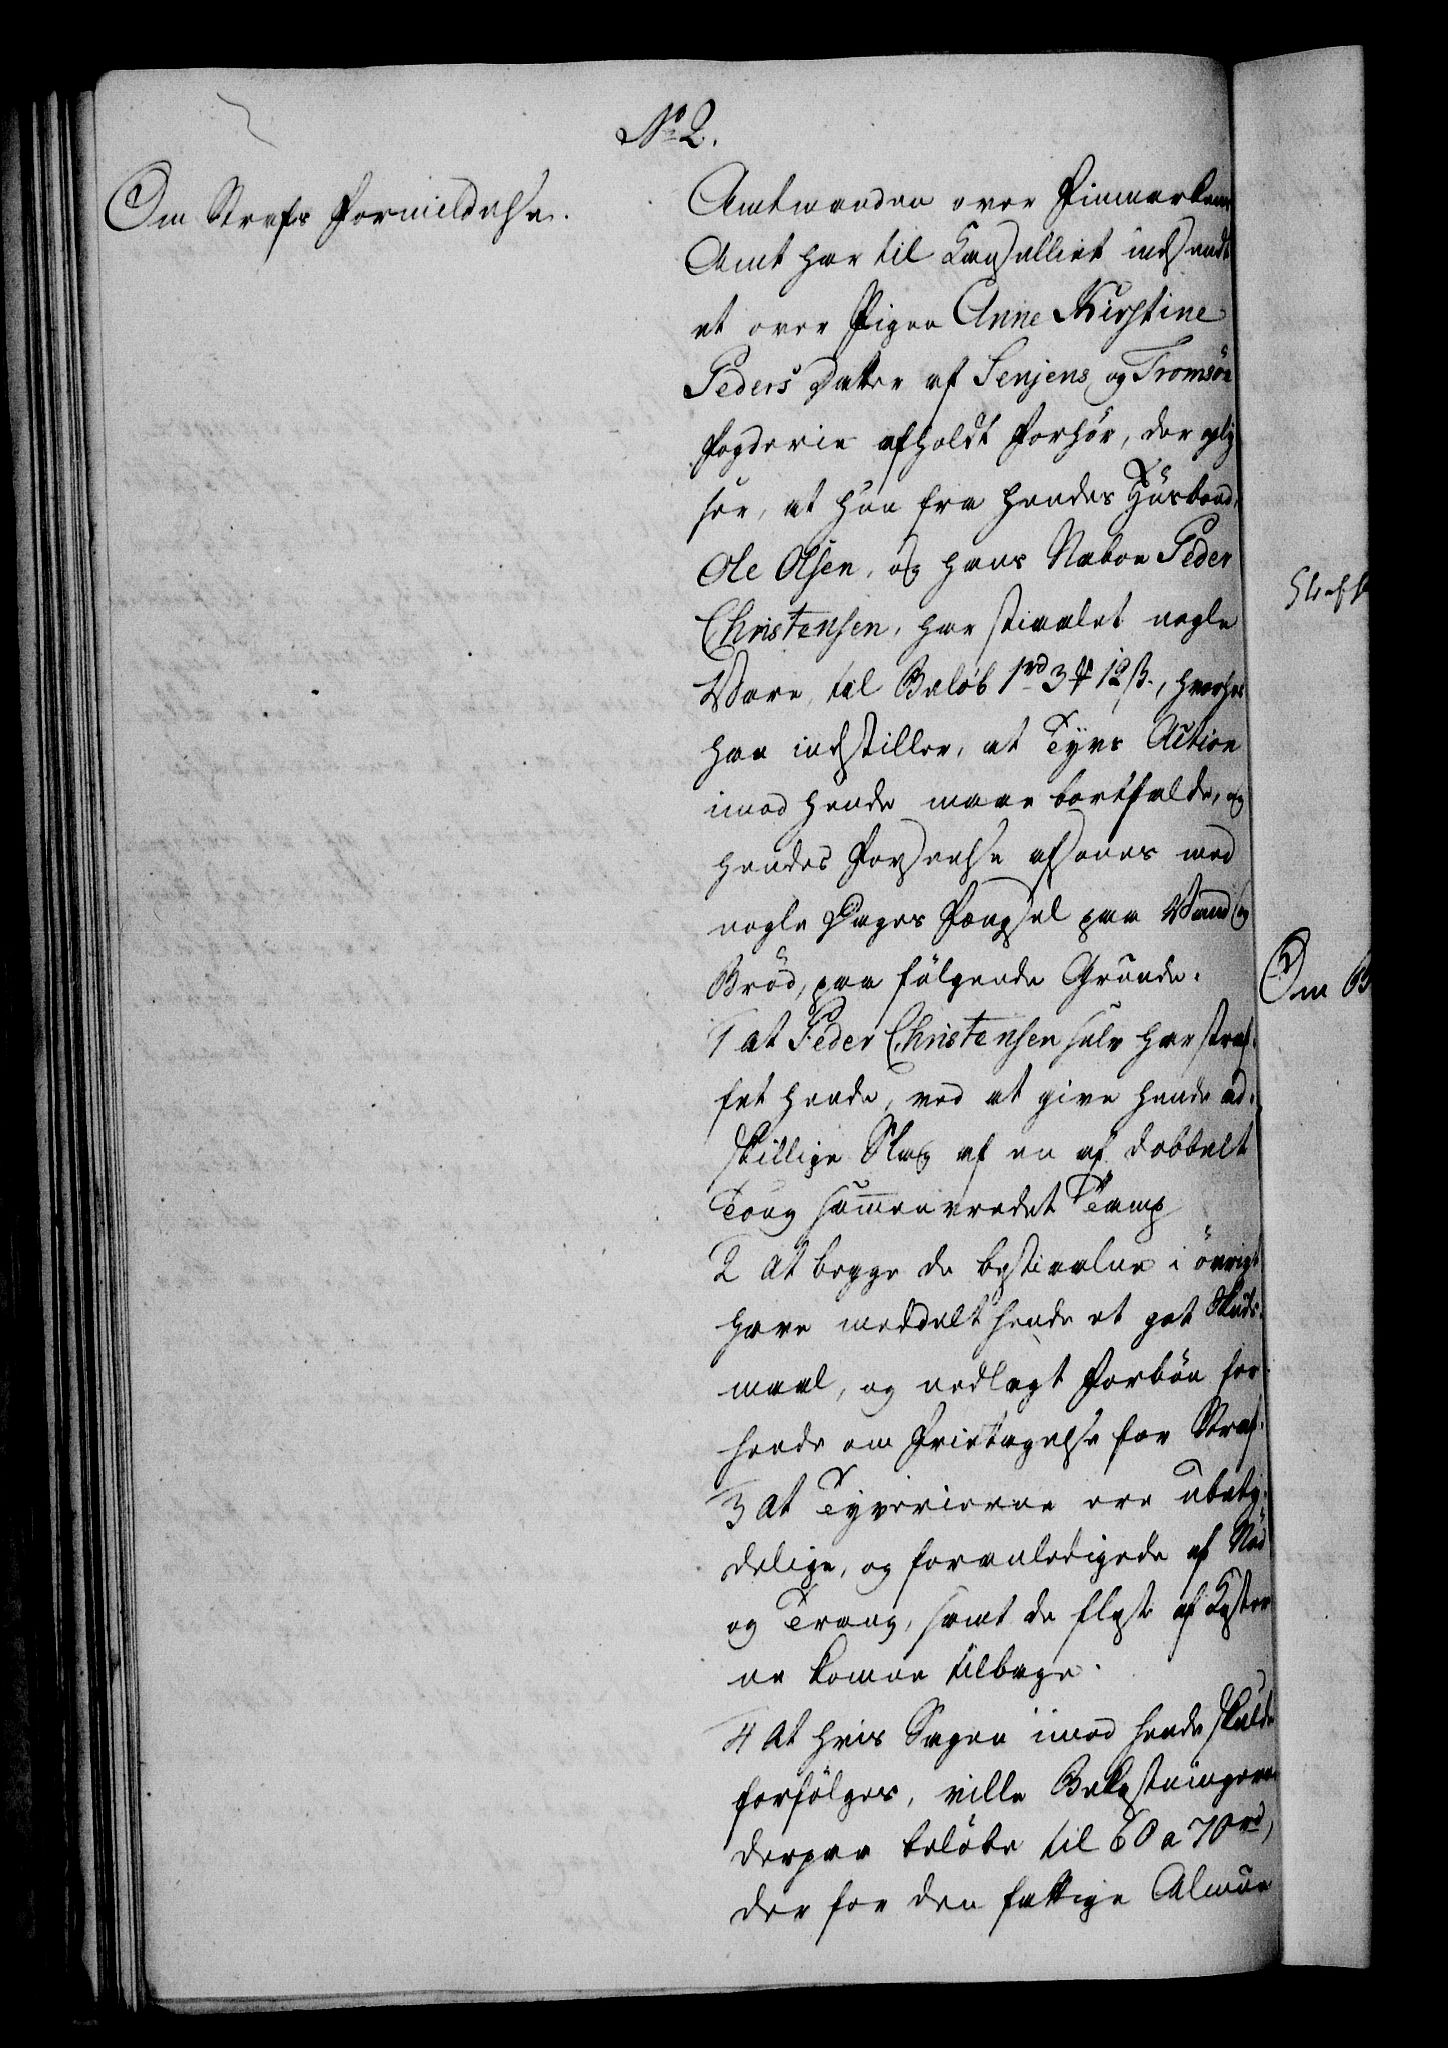 No 2.
Om Strafs Formildelse.
Amtmanden over Finmarkens
Amt har til Cancelliet indsendt
et over Pigen Anne Kirstine
Peders Datter af Senjens og Tromsöe
Fogderie afholdt Forhör, der oply
ser, at hun fra hendes Huusbond,
Ole Olsen, og hans Naboe Peder
Christensen, har stiaalet nogle
Vare, til Belöb 1rd 3 12 ß., hvorhos
han indstiller, at Tyvs Action
imod hende maae bortfalde, og
hendes Forseelse afsones med
nogle Dages Fængsel paa Vand og
Bröd, paa fölgende Grunde.
1 at Peder Christensen selv har straf-
fet hende, ved at give hende ad-
skillige Slag af en af dobbelt
Toug sammenvredet Tamp
2 at begge de bestiaalne i övrigt
have meddelt hende et got Skuds-
maal, og nedlagt Forbön for
hende om Fritagelse for Straf.
3 at Tyverierne ere ubety-
delige, og foranledigede af Nöd
og Trang, samt de fleste af Koster
ne komne tilbage.
4 at hvis Sagen imod hende skulde
forfölges, ville Bekostningerne
derpaa belöbe til 60 a 70rd,
der for den fattige Almue
Om B